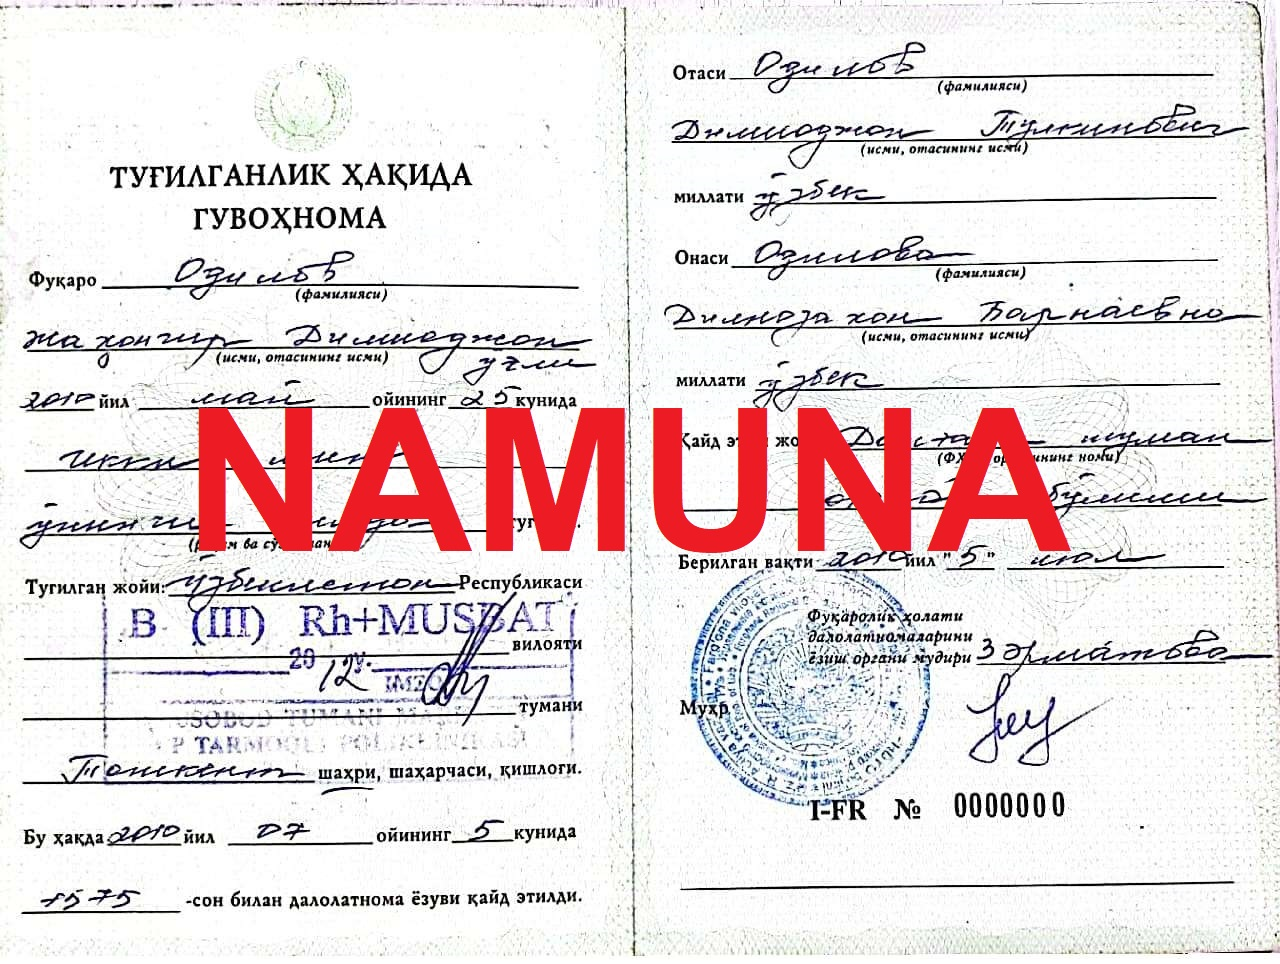 ТУҒИЛГАНЛИК ҲАҚИДА
ГУВОҲНОМА
Фуқаро Одилов
(фамилияси)
Жаҳонгир Дилшоджон
(исми, отасининг исми) ўғли
2010 йил май ойининг 25 кунида
икки минг
ўнинчи
Туғилган жойи: Ўзбекистон Республикаси
B (III) Rh+MUSBAT
вилояти
2012 y.
IMZO
тумани
Тошкент шаҳри, шаҳарчаси, қишлоғи.
Бу ҳақда 2010 йил 07 ойининг 5 кунида
1575 -сон билан далолатнома ёзуви қайд этилди.
Отаси Одилов
(фамилияси)
Дилшоджон
(исми, отасининг исми)
миллати ўзбек
Онаси Одилова
(фамилияси)
Дилнозахон
(исми, отасининг исми)
миллати ўзбек
NAMUNA
Берилган вақти 2010 йил "5" июл
Фуқаролик ҳолати
далолатномаларини
ёзиш органи мудири
Муҳр
I-FR № 0000000